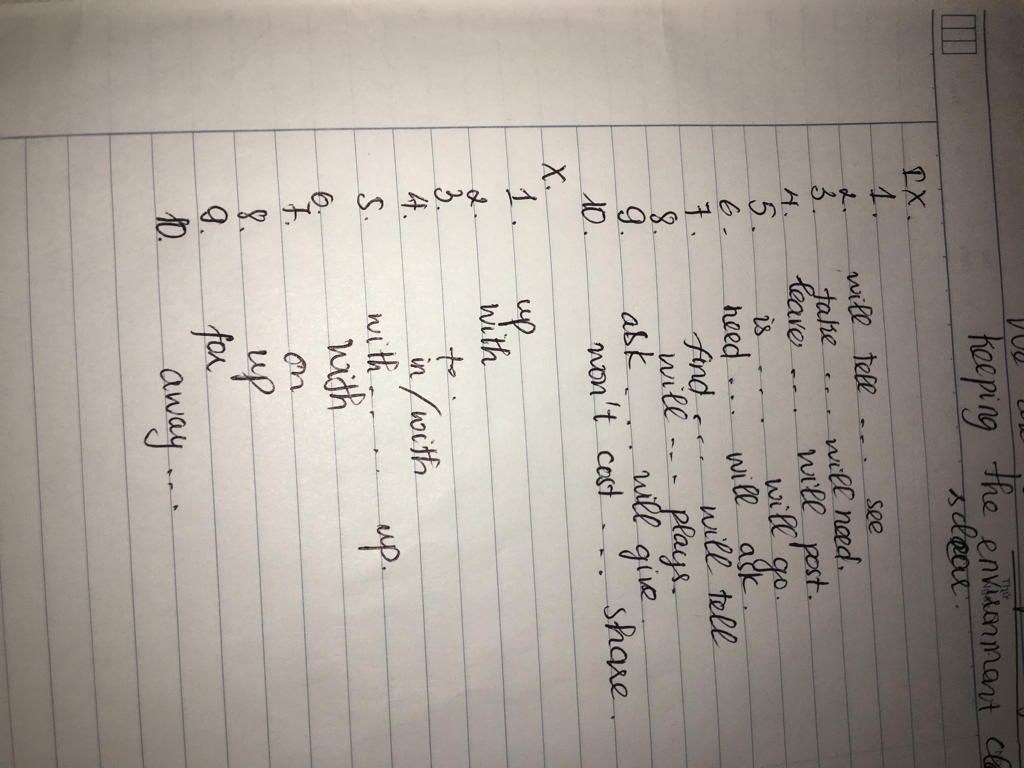 keeping the environment
s clear.
IX.
1.
2. will tell ... see
3. take ... will need.
4. leave. ... will post.
5. is .... will go.
6. need.... will ask.
7. find ... will tell
8. will ... plays.
9. ask ... will give
10. won't cost ... share.
X.
1. up
2. with
3. to.
4. in/with
5. with.... up.
6. with
7. on
8. up
9. for
10. away....